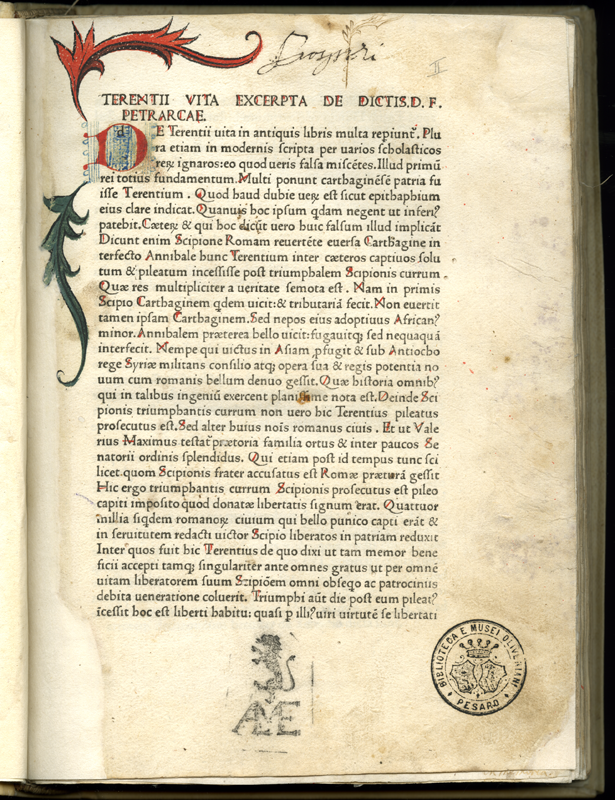 II
TERENTII VITA EXCERPTA DE DICTIS.D. F.
PETRARCAE.
DE Terentii uita in antiquis libris multa repiunt̃. Plu
ra etiam in modernis scripta per uarios scholasticos
reꝝ ignaros: eo quod ueris falsa miscẽtes. Illud primũ
rei totius fundamentum. Multi ponunt carthaginẽsẽ patria fu
isse Terentium. Quod haud dubie ueꝝ est sicut epithaphium
eius clare indicat. Quanuis hoc ipsum qdam negent ut inferiꝰ
patebit. Cæteꝝ & qui hoc dicũt uero huic falsum illud implicãt
Dicunt enim Scipione Romam reuertẽte euersa Carthagine in
terfecto Annibale hunc Terentium inter cæteros captiuos solu
tum & pileatum incessisse post triumphalem Scipionis currum
Quæ res multipliciter a ueritate semota est. Nam in primis
Scipio Carthaginem qdem uicit: & tributariã fecit. Non euertit
tamen ipsam Carthaginem. Sed nepos eius adoptiuus Africanꝰ
minor. Annibalem præterea bello uicit: fugauitqꝫ sed nequaquã
interfecit. Nempe qui uictus in Asiam ꝓfugit & sub Antiocho
rege Syriæ militans consilio atqꝫ opera sua & regis potentia no
uum cum romanis bellum denuo gessit. Quæ historia omnibꝰ
qui in talibus ingeniũ exercent planissime nota est. Deinde Sci
pionis triumphantis currum non uero hic Terentius pileatus
prosecutus est. Sed alter huius noĩs romanus ciuis. Et ut Vale
rius Maximus testat̃ prætoria familia ortus & inter paucos Se
natorii ordinis splendidus. Qui etiam post id tempus tunc sci
licet quom Scipionis frater accusatus est Romæ præturã gessit
Hic ergo triumphantis currum Scipionis prosecutus est pileo
capiti imposito quod donatæ libertatis signum erat. Quattuor
millia siqdem romanoꝝ ciuium qui bello punico capti erãt &
in seruitutem redacti uictor Scipio liberatos in patriam reduxit
Inter quos fuit hic Terentius de quo dixi ut tam memor bene
ficii accepti tamqꝫ singulariter ante omnes gratus ut per omnẽ
uitam liberatorem suum Scipiõem omni obseqo ac patrocinus
debita ueneratione coluerit. Triumphi aũt die post eum pileatꝰ
ĩcessit hoc est liberti habitu: quasi p illiꝰ uiri uirtutẽ se libertati
AME
BIBLIOTECA E MUSEI OLIVERIANI
PESARO